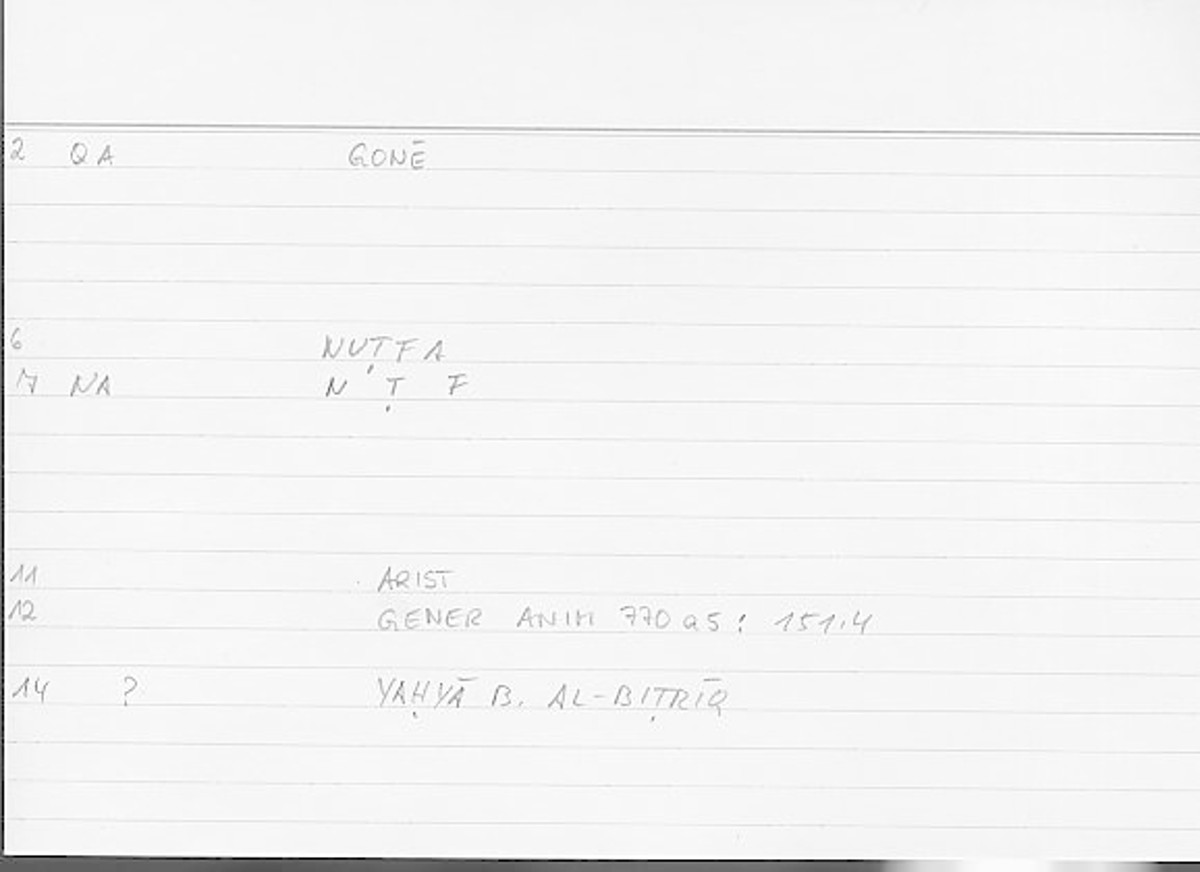 2 QA GONĒ
6 NUṬFA
7 NA N Ṭ F
11 ARIST
12 GENER ANIM 770 a 5 : 151.4
14 ? YAḤYĀ B. AL-BIṬRĪQ